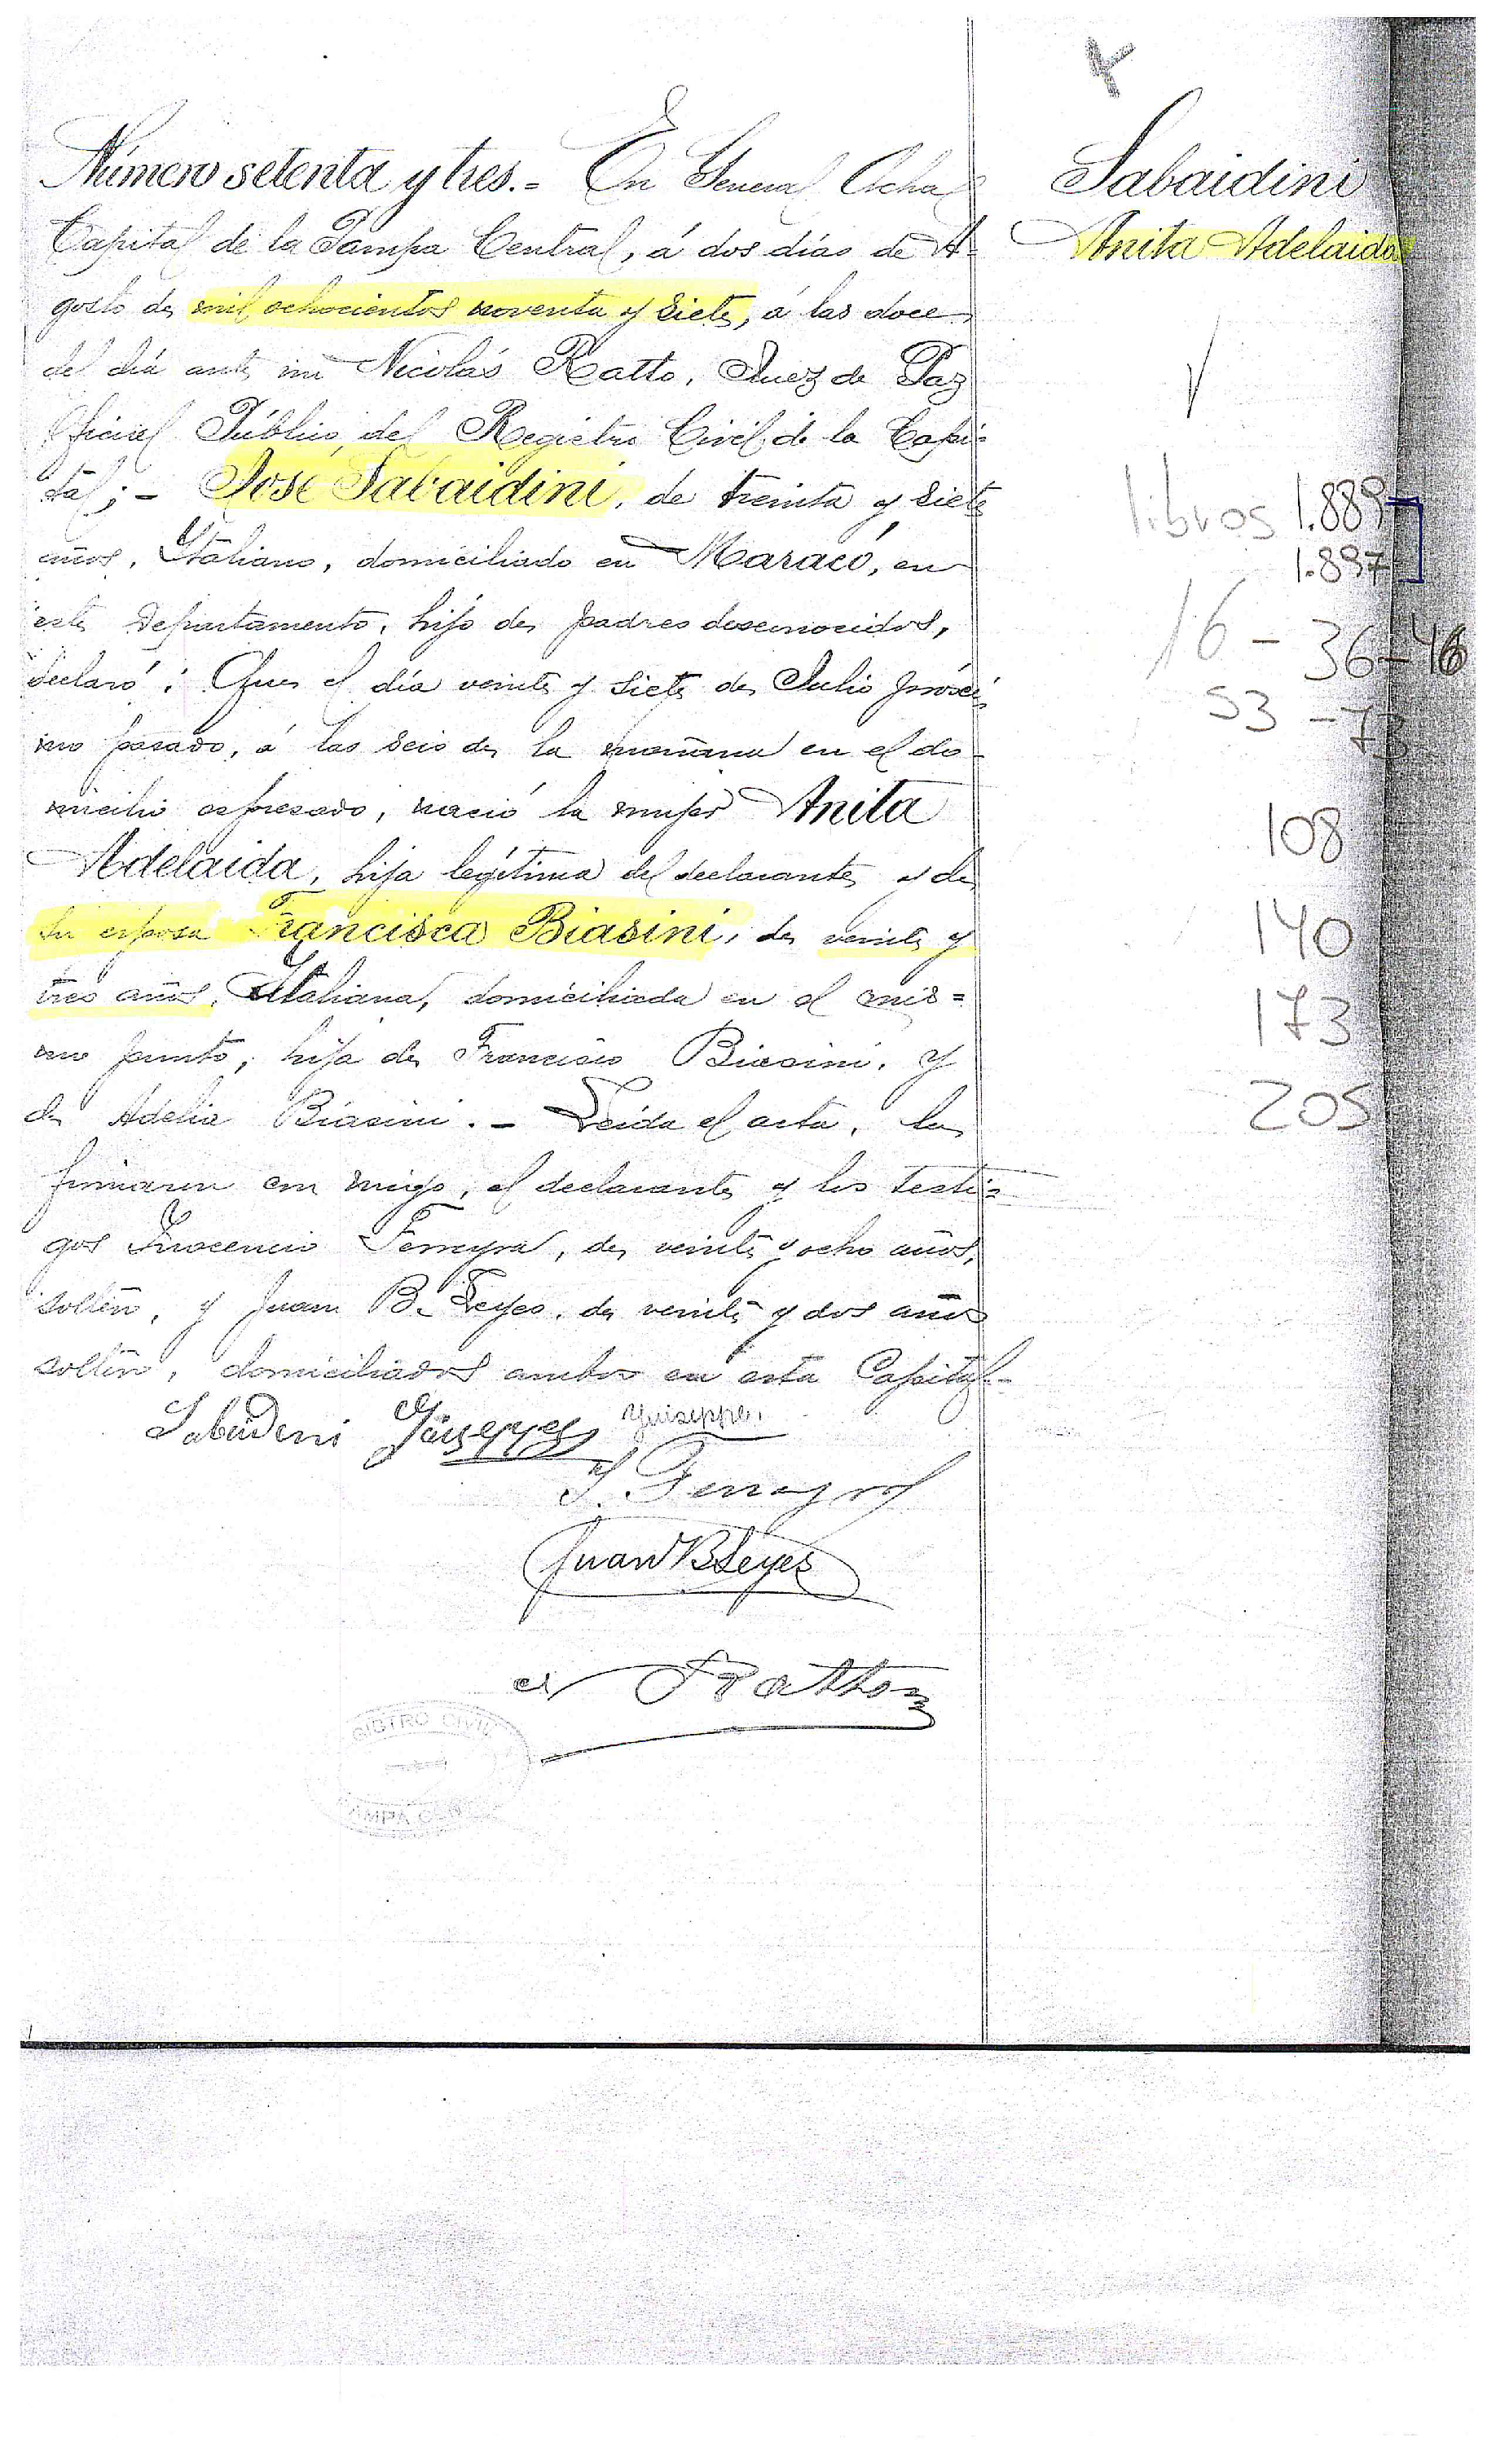 Número setenta y tres.- En General Acha
Capital de la Pampa Central, á dos días de A-
gosto de mil ochocientos noventa y siete, á las doce
del día ante mi Nicolás Ratto, Juez de Paz
Oficial Público del Registro Civil de la Capi-
tal; - José Sabaidini, de treinta y siete
años, Italiano, domiciliado en Maracó, en
este Departamento, hijo de padres desconocidos,
declaró: Que el día veinte y siete de Julio próxi-
mo pasado, á las seis de la mañana en el do-
micilio espresado, nació la mujer Anita
Adelaida, hija legítima del declarante y de
su esposa Francisca Biasini, de veinte y
tres años, Italiana, domiciliada en el mis=
mo punto, hija de Francisco Biasini, y
de Adelia Biasini. - Leída el acta, la
firmaron con migo, el declarante y los testi=
gos Inocencio Ferreyra, de veinte y ocho años,
soltero, y Juan B. Leyes, de veinte y dos años
soltero, domiciliados ambos en esta Capital.-
Sabaideni Giuseppe Guiseppe.
I. Ferreyra
Juan B Leyes
Ratto
GISTRO CIVIL
Sabaidini
Anita Adelaida
libros 1.889
1.897
16 - 36 - 46
53 - 73
108
140
173
205